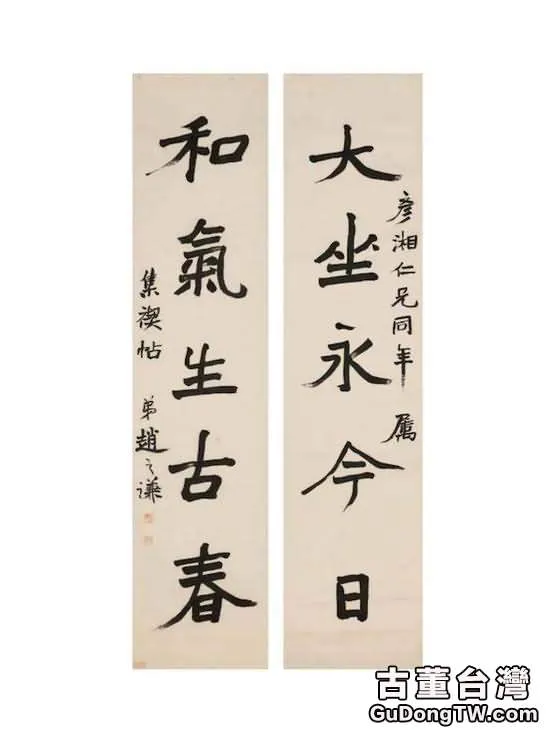 大坐永今日
彦湘仁兄同年 属
和氣生古春
集禊帖 弟趙之謙
古董台灣
GuDongTW.com